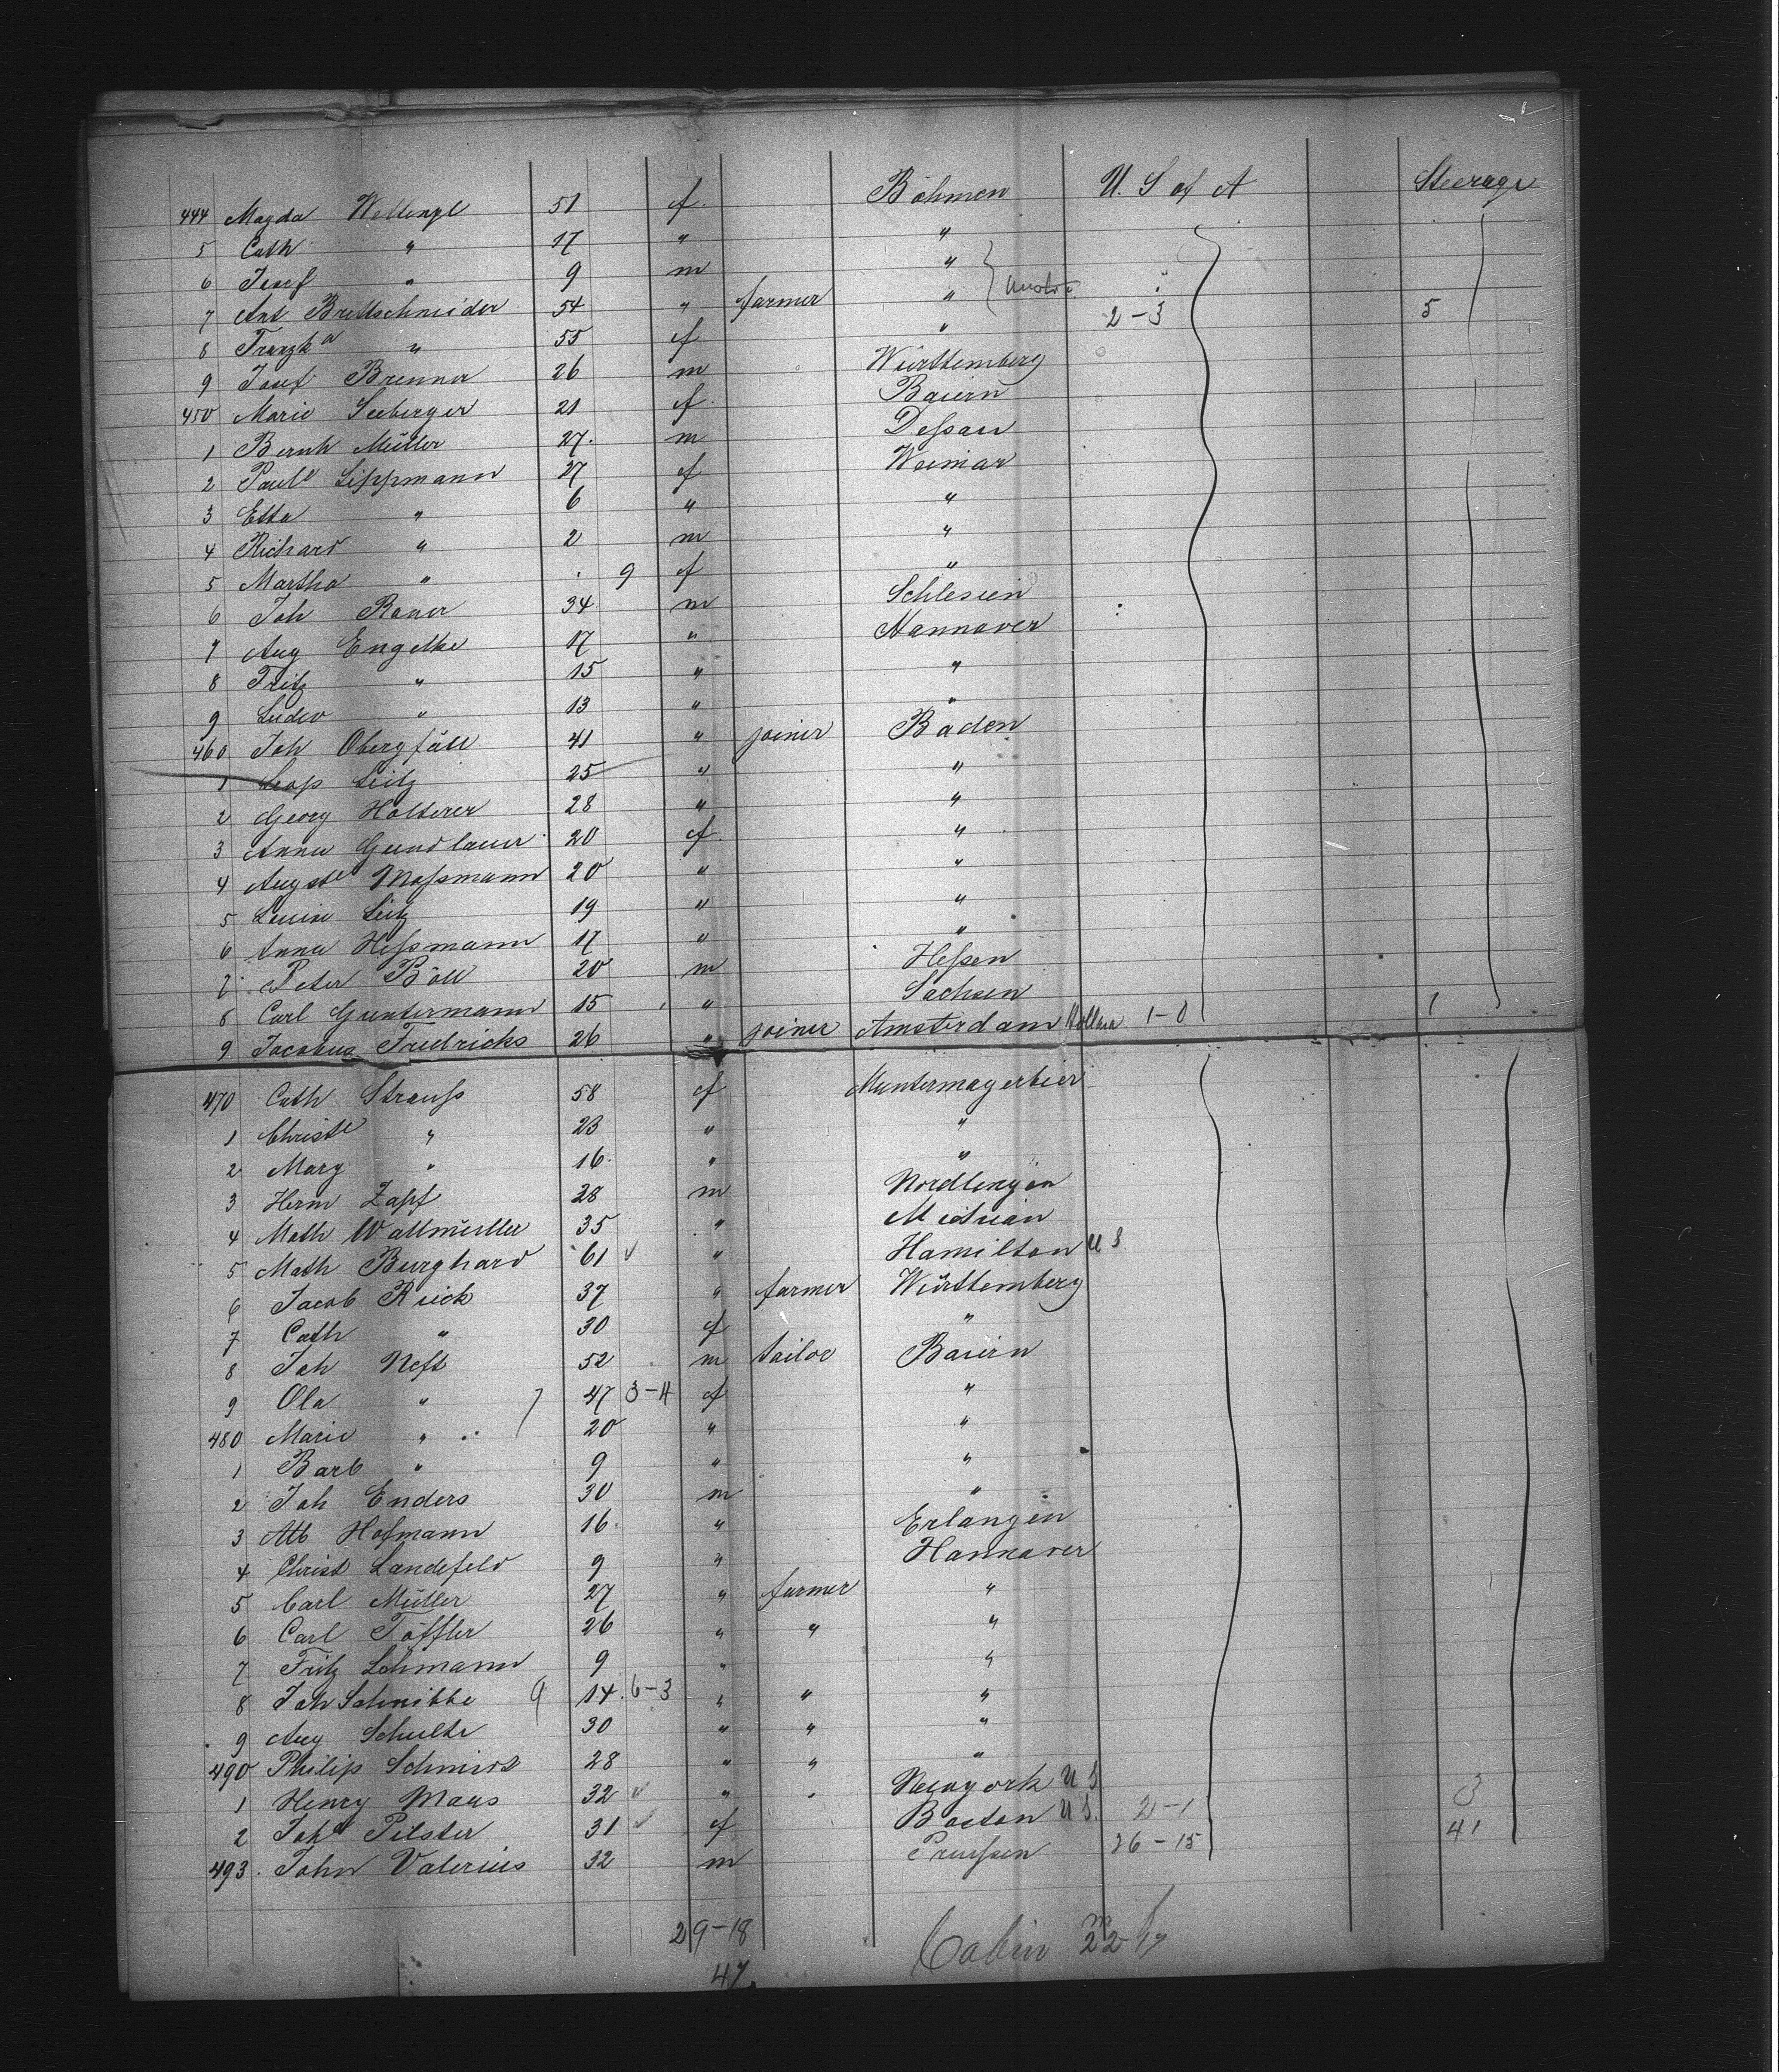 444 Magda Weltenzl 51 f. Böhmen U. S of A Steerage
5 Cath " 17 " "
6 Josef " 9 m "
7 Ant Brettschneider 54 " farmer "
8 Franzka " 55 f " 2-3 5
9 Josef Brenner 26 m Württemberg
450 Marie Seeberger 21 f. Baiern
1 Bernh Müller 27. m Deßau
2 Paule Lippmann 27 f Weimar
3 Etta " 6 " "
4 Richard " 2 m "
5 Martha " . 9 f "
6 Joh Bauer 34 m Schlesien
7 Aug Engelke 17 " Hannover
8 Fritz " 15 " "
9 Ludw " 13 " "
460 Joh Obergfäll 41 " joiner Baden
1 Leop Leitz 25 " "
2 Georg Holterer 28 " "
3 Anna Gundlauer 20 f. "
4 Auguste Moßmann 20 " "
5 Louise Leitz 19 " "
6 Anna Heßmann 17 " "
7 Peter Böll 20 m Heßen
8 Carl Guntermann 15 " Sachsen
9 Jacobus Fredricks 26 " joiner Amsterdam Holland 1-0 1
470 Cath Strauß 58 f
1 Christe " 23 " "
2 Mary " 16. " "
3 Herm Zapf 28 m Nordlingen
4 Math Wallmüller 35 "
5 Math Burghard 61 ✓ " Hamilton U S
6 Jacob Rieck 37 " farmer Württemberg
7 Cath " 30 f "
8 Joh Neft 52 m tailor Baiern
9 Ola " 47 3-4 f "
480 Marie " 20 " "
1 Barb " 9 " "
2 Joh Enders 30 m "
3 Alb Hofmann 16. " Erlangen
4 Christ Landefeld 9 " Hannover
5 Carl Müller 27 " farmer "
6 Carl Töffler 26 " " "
7 Fritz Lohmann 9 " "
8 Joh Schnibbe 9 14. 6-3 " " "
9 Aug Schulte 30 " " "
490 Philip Schmidt 28 " " "
1 Henry Maus 32 ✓ " Newyork U S
2 Johe Pilster 31 ✓ f Boston U S. 2-1 3
493. John Valerius 32 m Preußen 26-15 41
29-18
47.
Cabin 22 17